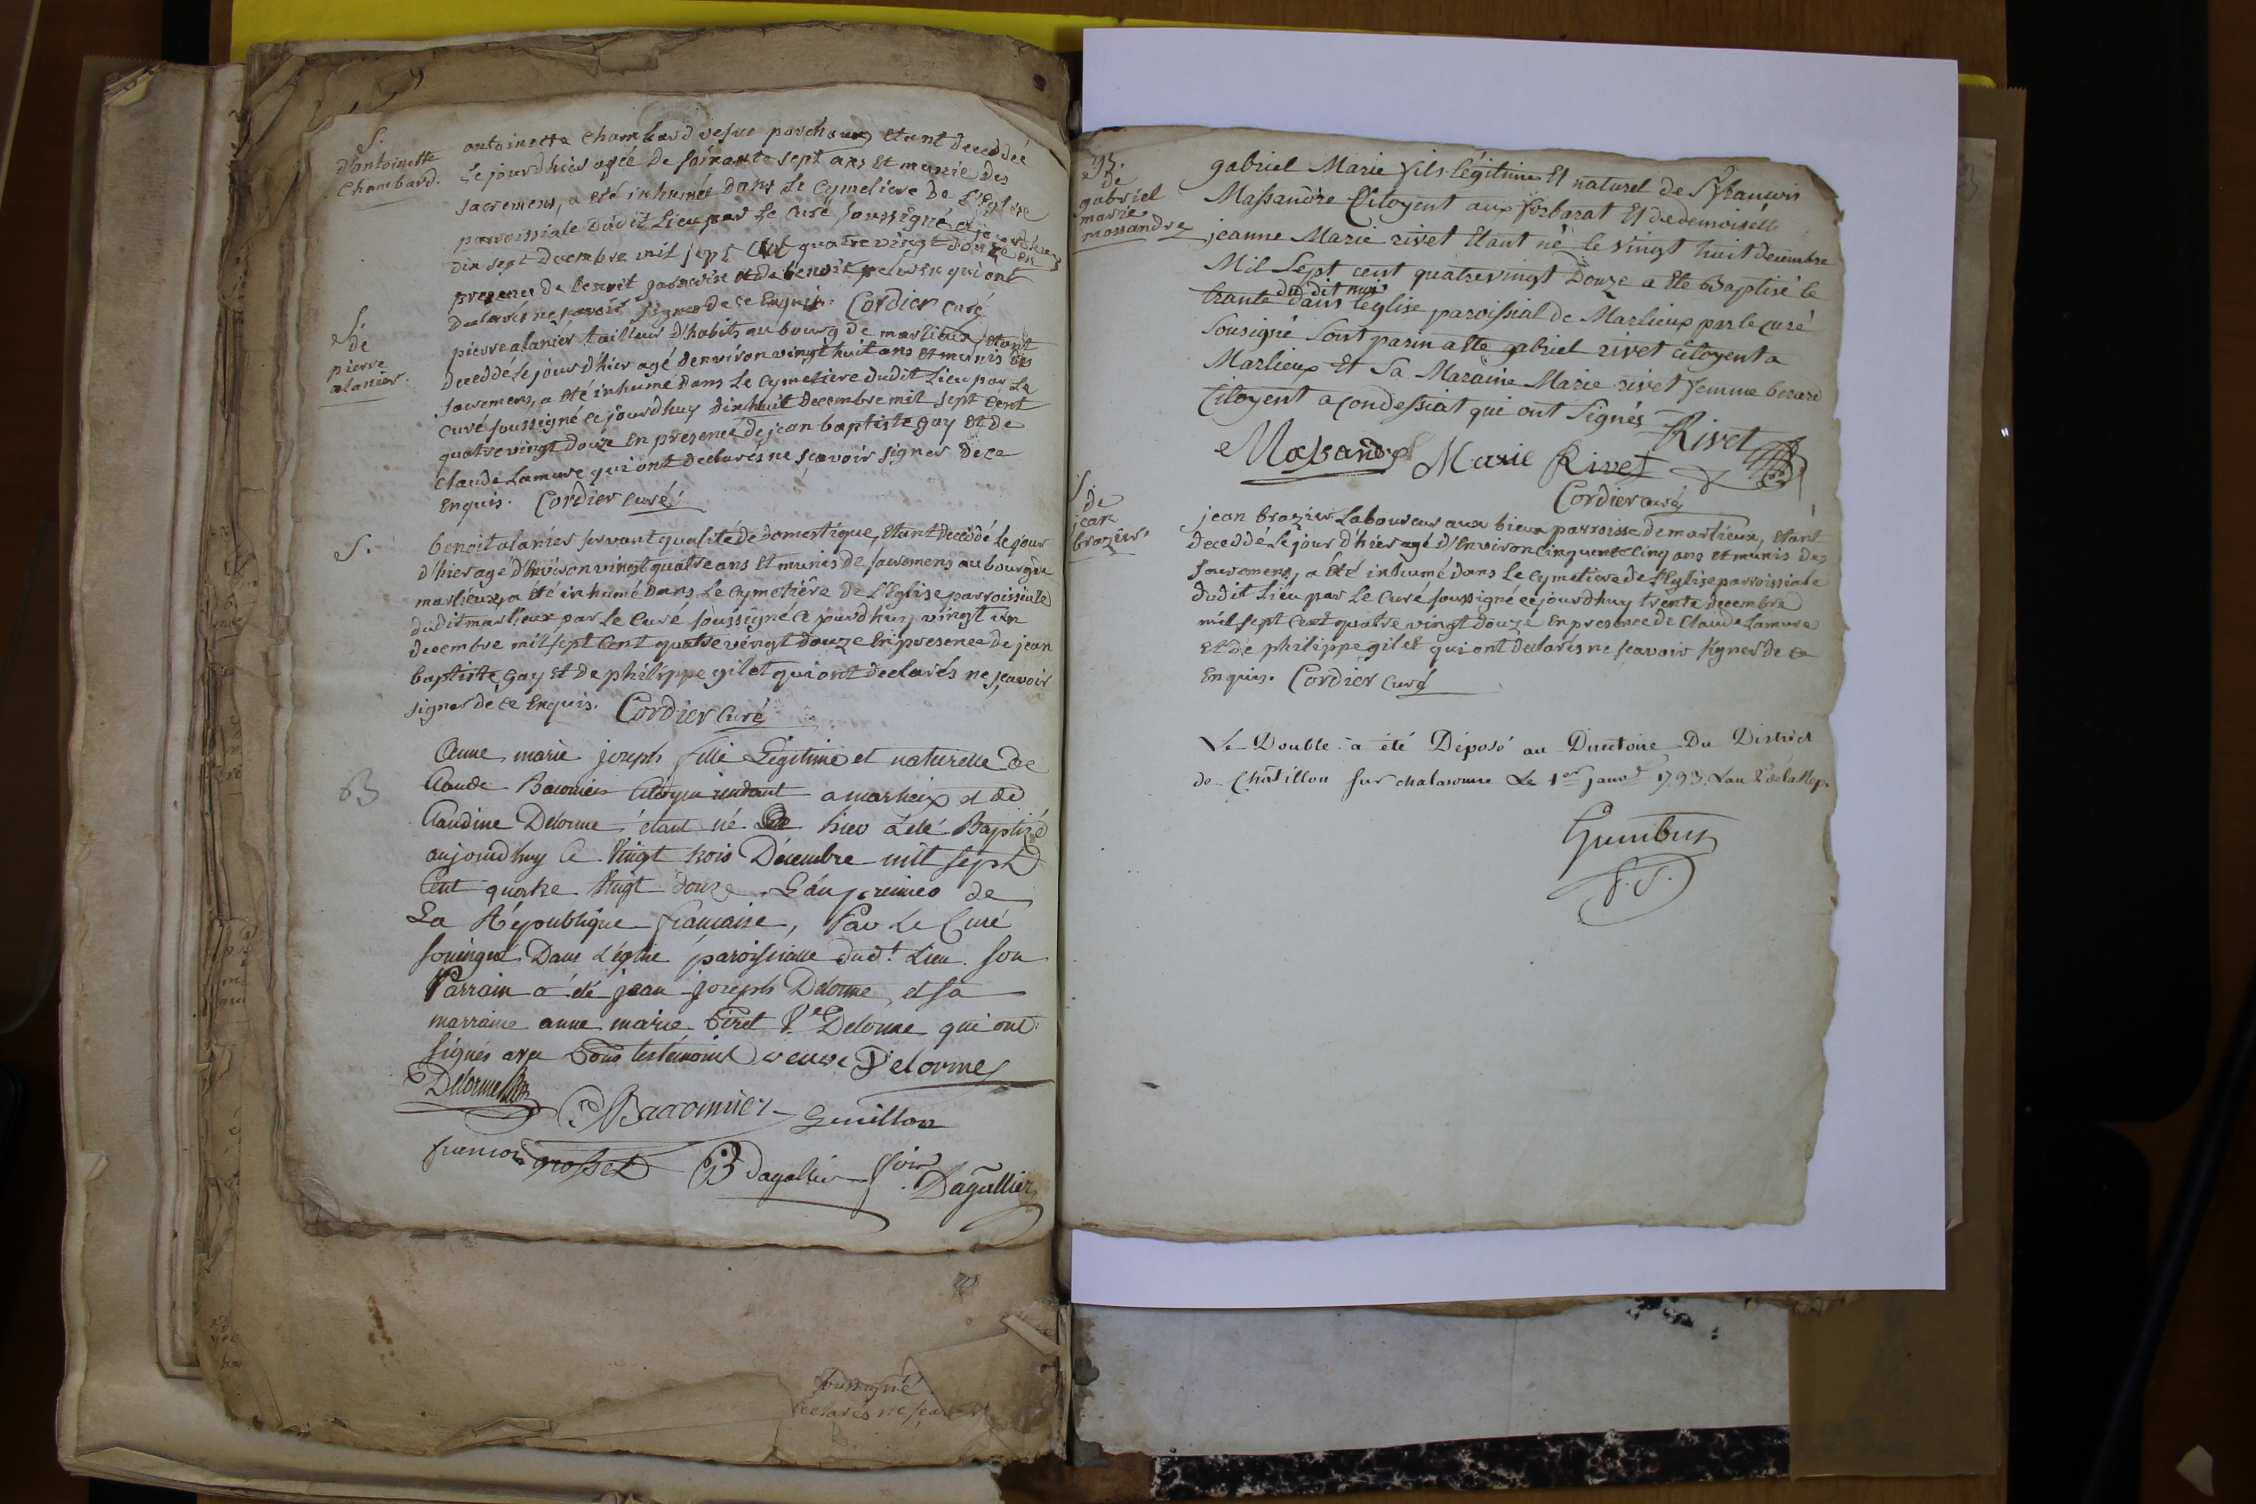 S.
d'antoinette
Chambard.
antoinette Chambard vefve parchaux, etant deceddeé
Le jour d'hier agée de soixante sept ans Et munie des
sacremens, a eté inhumée dans Le Cymetiere de l'Eglise
parroissiale dudit Lieu par Le Curé soussigné ce jourd'huy
dix sept Decembre mil sept Cent quatre vingt douze En
presence de benoit et de benoit qui ont
declarés ne sçavoir signer de ce Enquis. Cordier curé
S.
de
pierre
alanier.
pierre alanier tailleur d'habits au bourg de marlieux, etant
deceddé Le jour d'hier agé d'environ vingt huit ans Et munis des
sacremens, a eté inhumé dans Le Cymetiere dudit Lieu par Le
curé soussigné ce jourd'huy dix huit decembre mil sept Cent
quatre vingt douze En présence de jean baptiste gay Et de
Claude Lamure qui ont declarés ne sçavoir signer de ce
Enquis. Cordier curé
S.
benoit alanier servant qualité de domestique, Etant deceddé Le jour
d'hier agé d'Environ vingt quatre ans Et munis de sacremens au bourg de
marlieux, a eté inhumé dans Le Cymetiére de L'Eglise parroissiale
dudit marlieux par Le Curé soussigné Ce jourd'huy vingt un
decembre mil sept Cent quatre vingt douze En presence de jean
baptiste gay Et de philippe gilet qui ont declarés ne sçavoir
signer de ce Enquis. Cordier Curé
B
Anne marie joseph fille Légitime et naturelle de
Claude Baconnier Citoyen residant a marlieux et de
Claudine Delorme étant né hier à été Baptizé
aujourd'huy Ce Vingt trois Décembre mil sept
Cent quatre Vingt douze L'an premier de
La République française, Par Le Curé
soussigné Dans L'église paroissialle dud.t Lieu son
Parrain a été jean joseph Delorme, et sa
marraine anne marie V.e Delorme qui ont
signés avec Tous testémoins veuve Delorme
Delorme
Baconnier Guillon
francois grosset B Dagallier
Dagallier
B.
de
gabriel
marie
massandre
gabriel Marie fils légitime Et naturel de S.r françois
Massandre Citoyent aux forbarat Et de demoiselle
jeanne Marie rivet Etant né le vingt huit decembre
Mil Sept cent quatrevingt Douze a Eté Baptisé le
trante du dit mois dans l'eglise paroissial de Marlieux par le curé
Sousigné Soit parin a Eté gabriel rivet citoyent a
Marlieux Et Sa Maraine Marie rivet femme berard
Citoyent a condessiat qui ont Signés Rivet
Massandre Marie Rivet
Cordier curé
S.
de
jean
brazier.
jean brazier Laboureur aux bieux parroisse de marlieux, etant
deceddé Le jour d'hier agé d'Environ Cinquante Cinq ans et munis des
sacremens, a Eté inhumé dans Le Cymetiere de l'Eglise parroissiale
dudit Lieu par Le Curé soussigné ce jourd'huy trente decembre
mil sept Cent quatre vingt douze En presence de Claude Lamure
Et de philippe gilet qui ont declarés ne sçavoir signer de ce
Enquis. Cordier Curé
Le Double a été Déposé au Directoire Du District
de Châtillon sur chalaronne Le 1er janv. 1793. L'an 2e de la Rep.
soussigné
declarés ne sçavoir